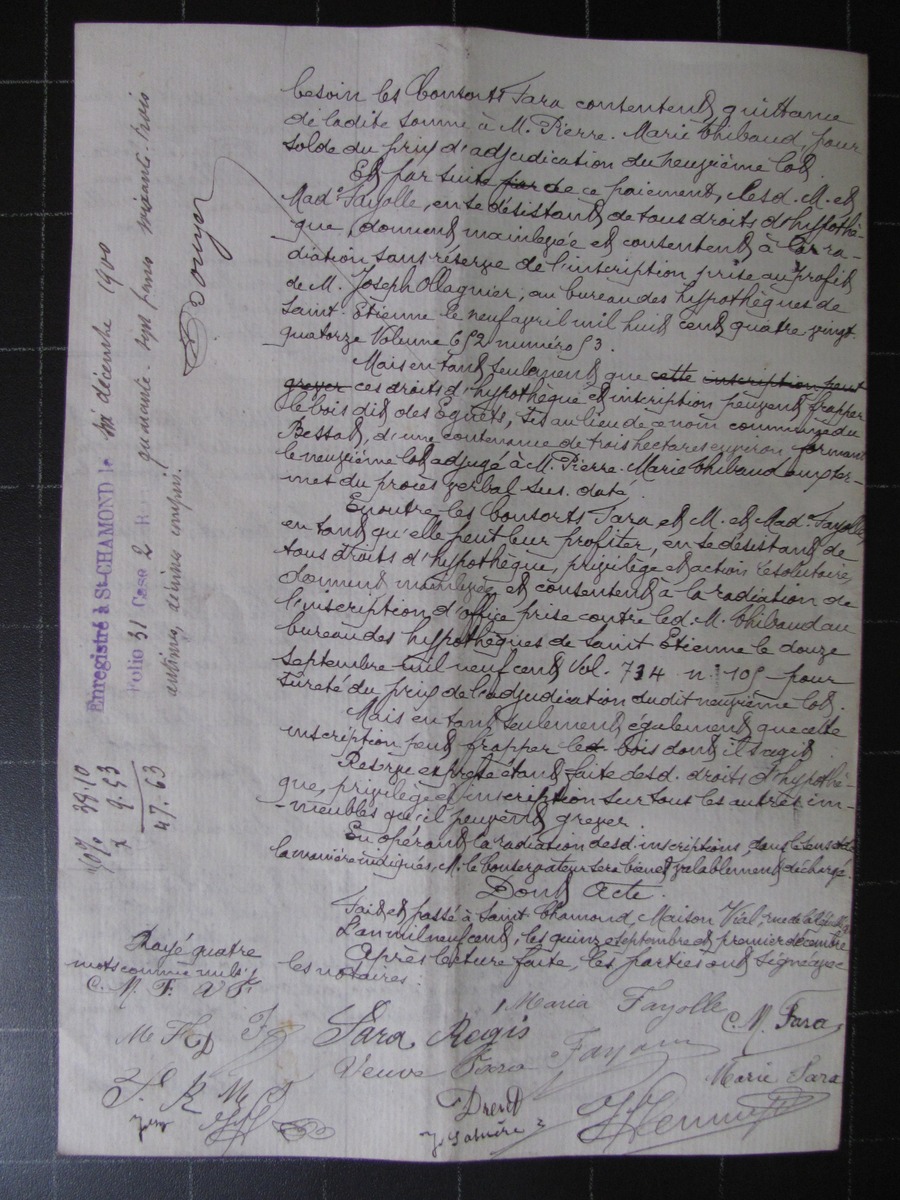 besoin les Consorts Fara contentent quittance
de ladite somme à M. Pierre-Marie Thibaud, pour
solde du prix d'adjudication du neuvième lot.
Et par suite par de ce paiement, lesd. M. et
Mad.e Fayolle, en se désistant de tous droits d'hypothè-
que, donnent mainlevée et consentent à la ra-
diation sans réserve de l'inscription prise au profit
de M. Joseph Ollagnier, au bureau des hypothèques de
Saint-Etienne le neuf avril mil huit cent quatre vingt-
quatorze Volume 652 numéro 53.
Mais en tant seulement que cette inscription peut
grever ces droits d'hypothèque et inscription peuvent frapper
le bois dit des Egaets, sis au lieu de ce nom commune du
Bessat, d'une contenance de trois hectares environ formant
le neuvième lot adjugé à M. Pierre-Marie Thibaud aux ter-
mes du procès verbal sus-daté.
En outre les Consorts Fara et M. et Mad.e Fayolle,
en tant qu'elle peut leur profiter, en se désistant de
tous droits d'hypothèque, privilège et action résolutoire,
donnent mainlevée et consentent à la radiation de
l'inscription d'office prise contre led. M. Thibaud au
bureau des hypothèques de Saint Etienne le douze
septembre mil neuf cent Vol. 734 n° 105 pour
sûreté du prix de l'adjudication dudit neuvième lot.
Mais en tant seulement également que cette
inscription peut frapper le bois dont il s'agit.
Réserve expresse étant faite desd. droits d'hypothè-
que, privilège et inscription sur tous les autres im-
-meubles qu'il peuvent grever.
En opérant la radiation desd. inscriptions dans le sens et de
la manière indiqués, M. le Conservateur sera bien et valablement déchargé.
Dont Acte.
Fait et passé à Saint Chamond Maison Vial, rue de la
L'an mil neuf cent, les quinze septembre et premier décembre
Après lecture faite, les parties ont signé avec
les notaires.
Rayé quatre
mots comme nuls.
C. M. F.
Maria Fayolle
C. M. Fara
M F
Fara Regis
Veuve Fara
Marie Fara
F. R. M.
Enregistré à St-CHAMOND le décembre 1900
Folio 31 Case 2 R
quarante-sept francs soixante-trois
centimes, décimes compris.
38.10
9.53
47.63